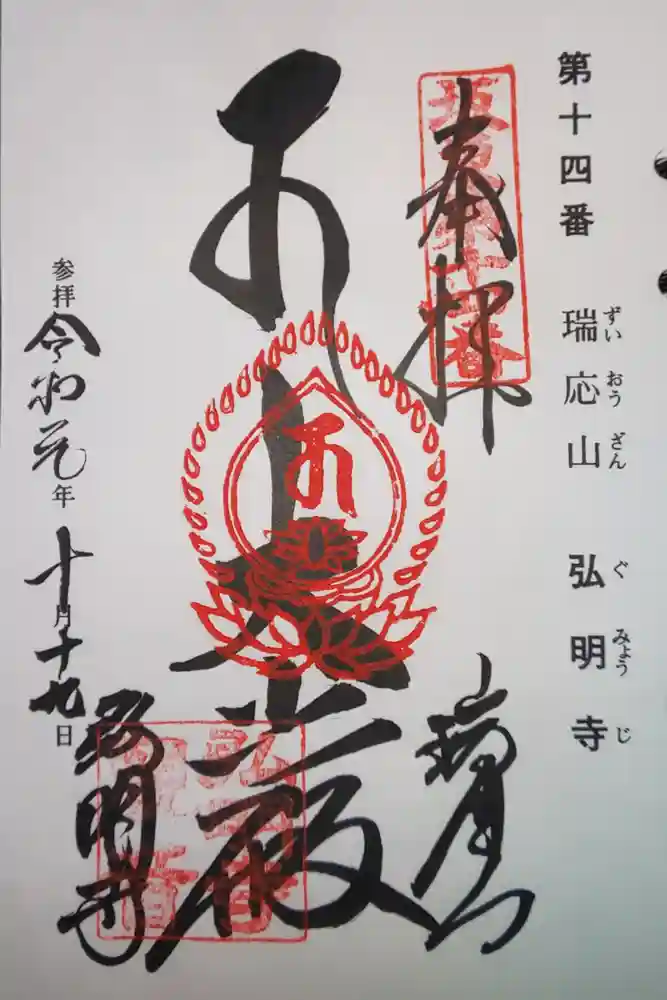 第十四番 瑞応山 弘明寺
ずいおうざん ぐみょうじ
坂東第十四番
奉拝
瑞應山
弘明寺
参拝 令和元年十月十九日